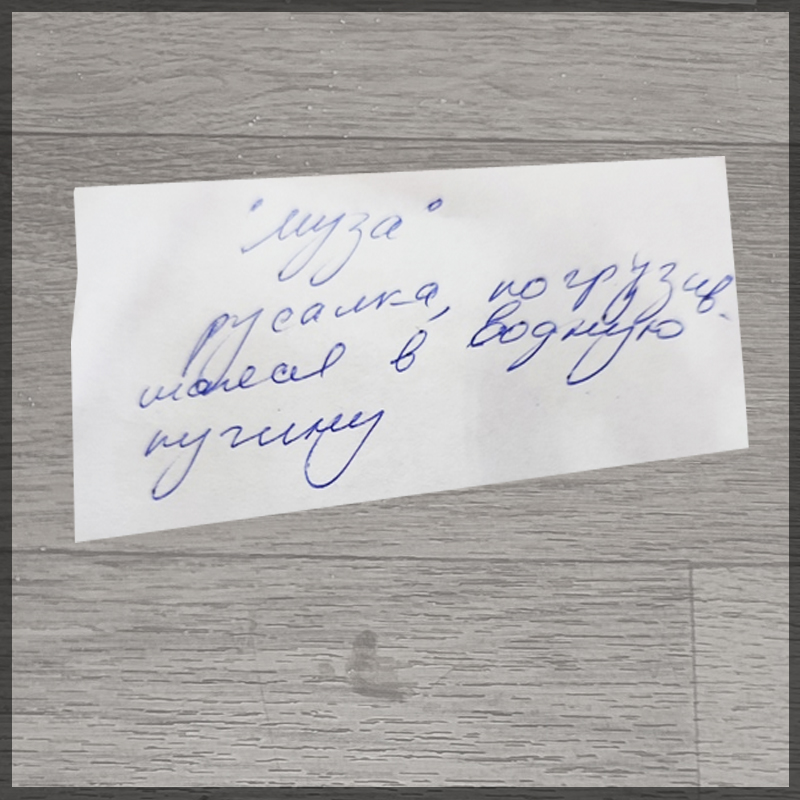 "муза"
русалка, погрузив-
шаяся в водную
пучину